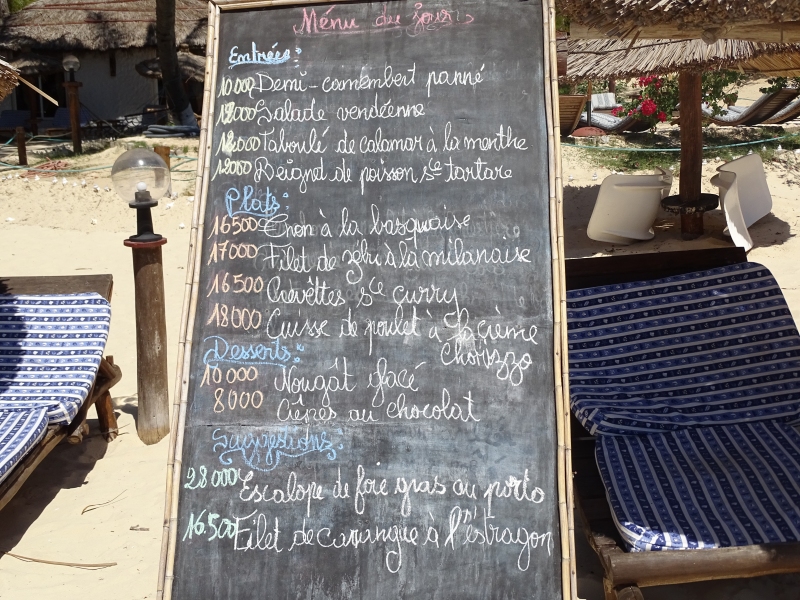 Ménu du jour
Entrées:
10000 Demi-camembert panné
12000 Salade vendéenne
12000 Taboulé de calamar à la menthe
12000 Beignet de poisson sce tartare
Plats:
16500 à la basquaise
17000 Filet de zébu à la milanaise
16500 Crevettes sce curry
18000 Cuisse de poulet à la crème
Chorizzo
Desserts:
10 000 Nougat glacé
8000 Crêpes au chocolat
Suggestions:
28 000 Escalope de foie gras au porto
16.500 Filet de carangue à l'estragon